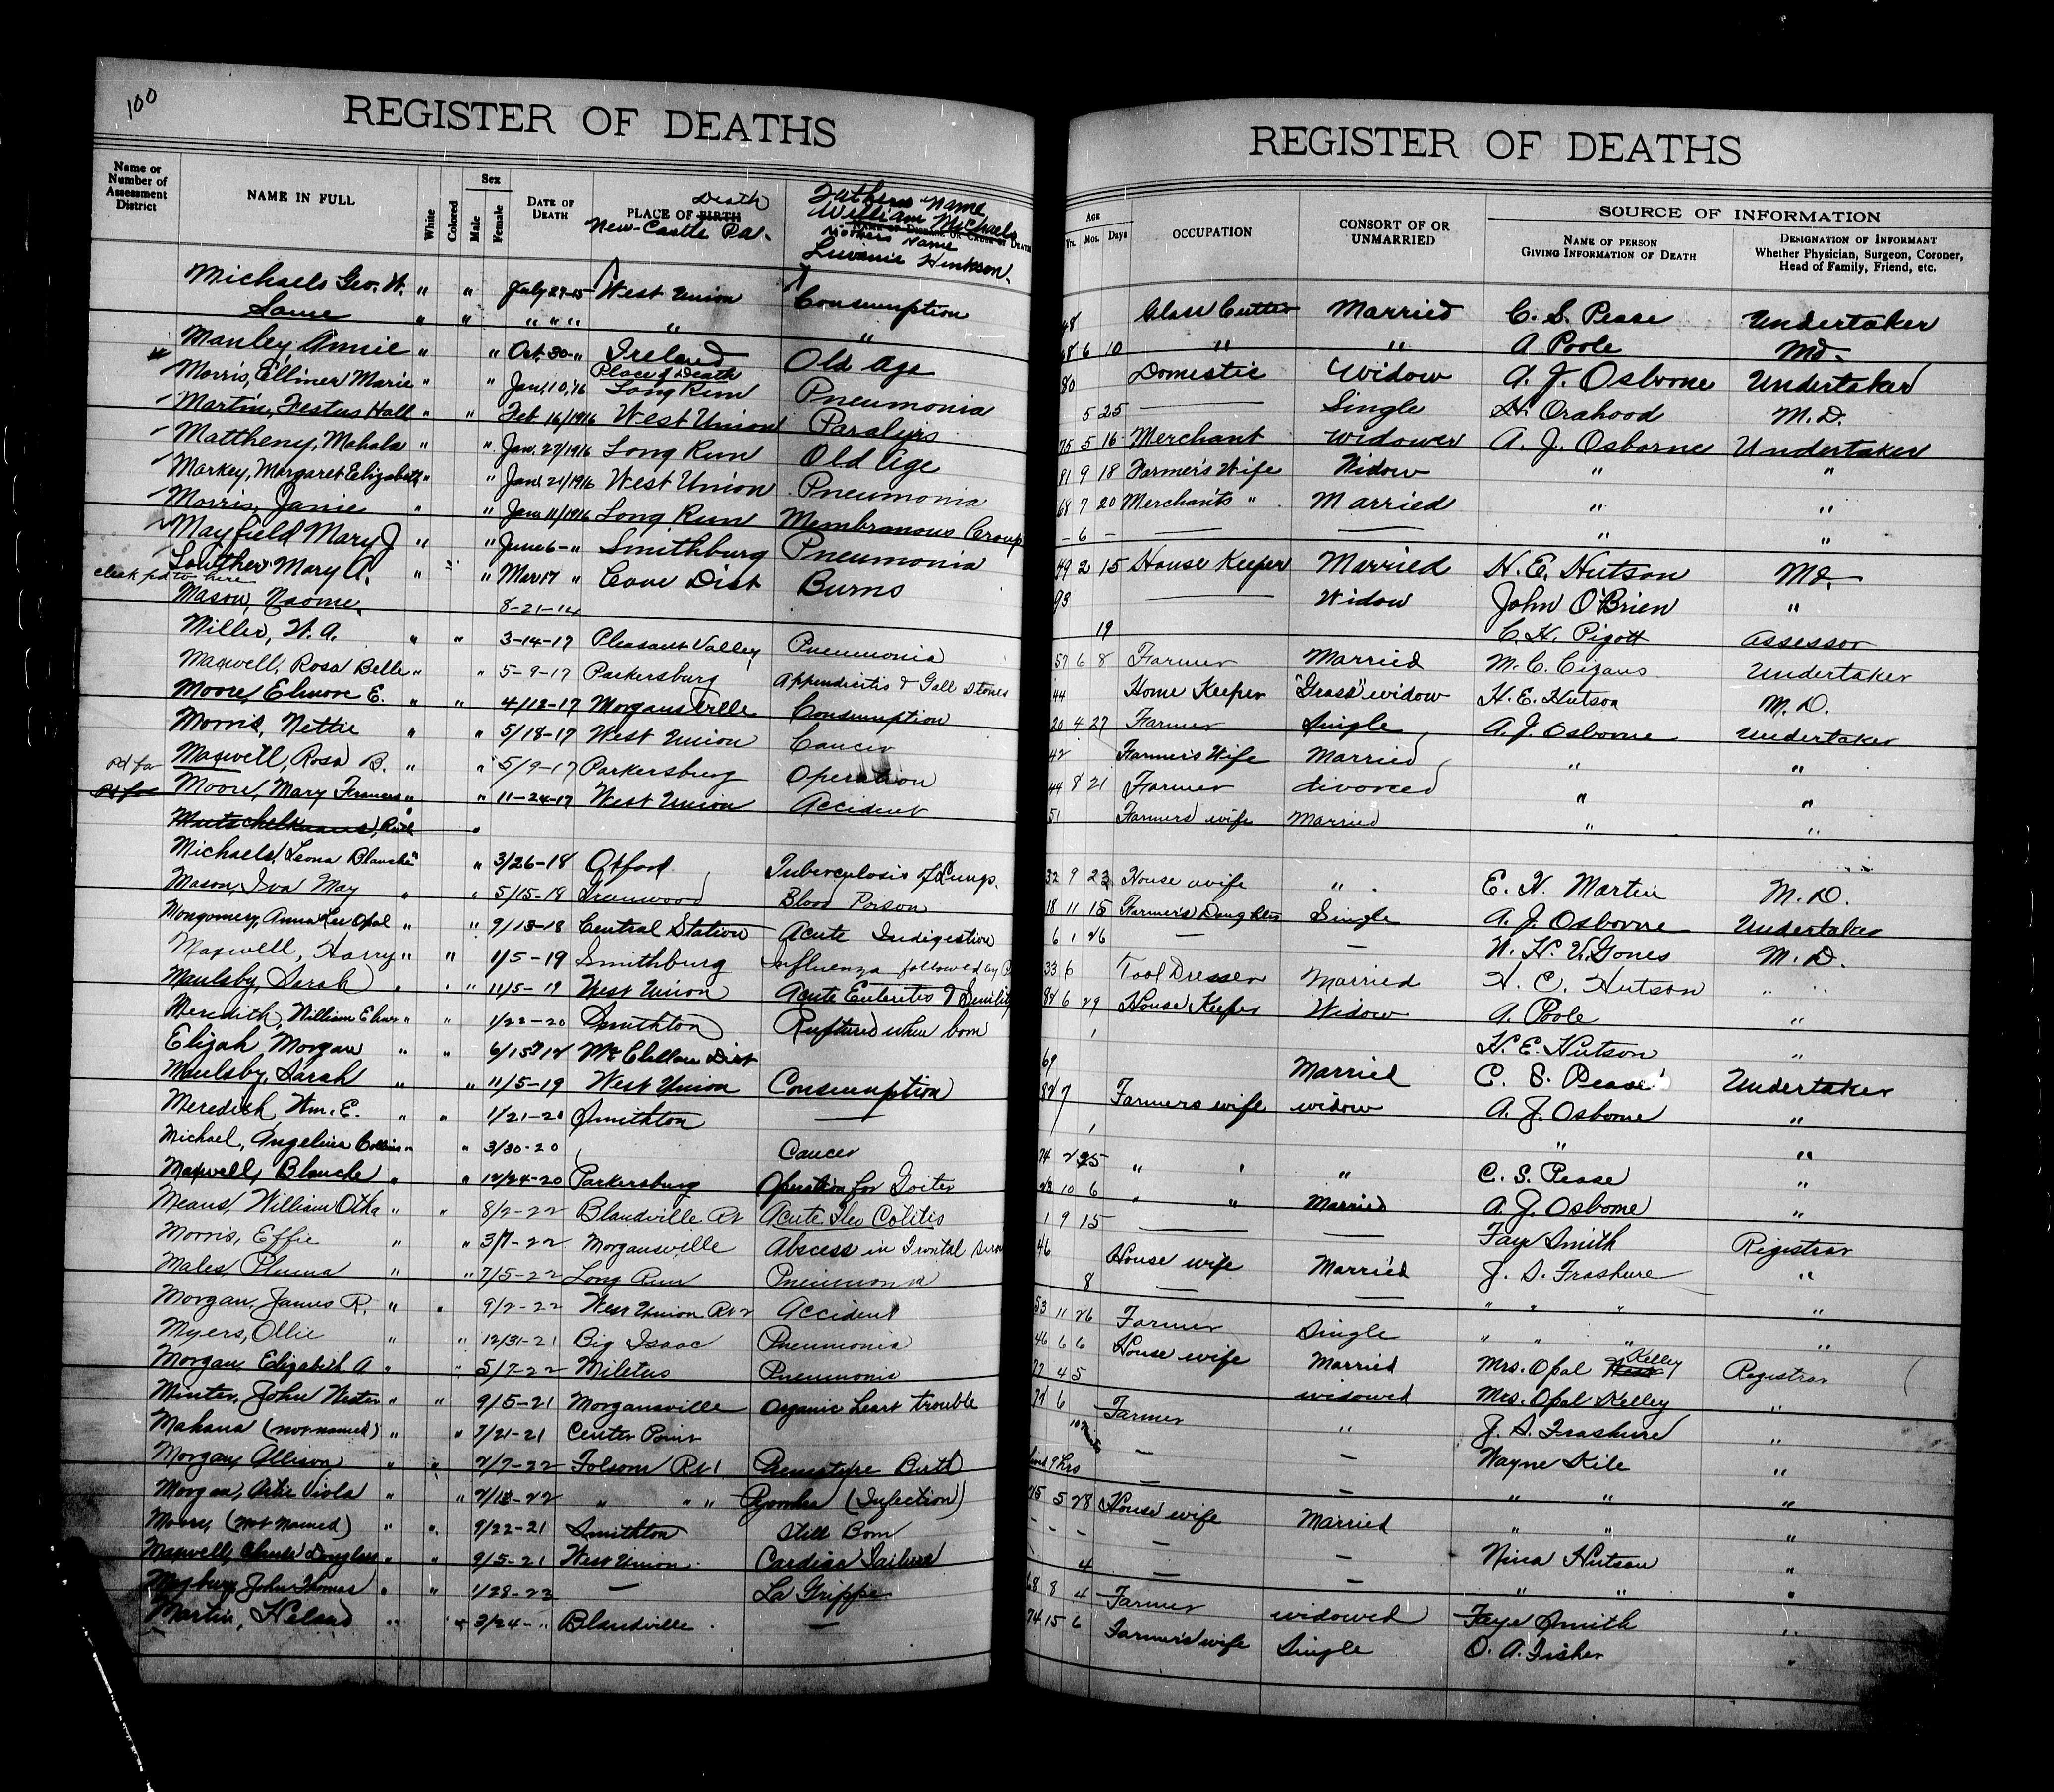 100
REGISTER OF DEATHS
Name or Number of Assessment District
NAME IN FULL
White
Colored
Sex
Male
Female
DATE OF DEATH
PLACE OF BIRTH Death
New-Castle Pa.
Fathers Name
William Michaels
NAME OF DISEASE OR CAUSE OF DEATH
Mothers Name
Hinkson
Michaels Geo. W. " " July 27-15 West Union Consumption
Same " " " " " " "
Manley Annie " " Oct. 30-" Ireland Old Age
Place of Death
Morris, Elliner Marie " " Jan. 10, '16 Long Run Pneumonia
Martin, Festus Hall " " Feb. 16/1916 West Union Paralysis
Mattheny, Mahala " " Jan. 27/1916 Long Run Old Age
Markey, Margaret Elizabeth " " Jan. 21/1916 West Union Pneumonia
Morris, Janie " " Jan. 11/1916 Long Run Membranous Croup
Mayfield Mary J " " June 6-" Smithburg Pneumonia
Louther Mary A. " " Mar 17 " Cove Dist Burns
clerk pd to here
Mason, Naome 8-21-14
Miller, W. A. " " 3-14-17 Pleasant Valley Pneumonia
Maxwell, Rosa Belle " " 5-9-17 Parkersburg Appendicitis & Gall Stones
Moore, Elmore E. " " 4/12-17 Morgansville Consumption
Morris, Nettie " " 5/18-17 West Union Cancer
Pd for Maxwell, Rosa B. " " 5/9-17 Parkersburg Operation
Pd for Moore, Mary Frances " " 11-24-17 West Union Accident
Michaels, Leona Blanche " " 3/26-18 Oxford Tuberculosis of Lungs.
Mason, Iva May " " 5/15-18 Greenwood Blood Poison
Montgomery, Anna Lee Opal " " 9/13-18 Central Station Acute Indigestion
Maxwell, Harry " " 1/5-19 Smithburg Influenza followed by P
Maulsby Sarah " " 11/5-19 West Union Acute Enteritis & Senility
Meredith, William Elmer " " 1/22-20 Smithton Ruptured when born
Elijah Morgan " " McClellan Dist
Maulsby, Sarah " " 11/5-19 West Union Consumption
Meredith Wm. E. " " 1/21-20 Smithton —
Michael, Angelina Collins " " 3/30-20 Cancer
Maxwell, Blanche " " 12/24-20 Parkersburg Operation for Goiter
Means, William Otha " " 8/2-22 Blandville Rt Acute Ileo Colitis
Morris, Effie " " 3/7-22 Morgansville Abscess in Frontal
Males, " " 7/5-22 Long Run Pneumonia
Morgan, James R. " " 9/2-22 West Union Rt 2 Accident
Myers, Ollie " " 12/31-21 Big Isaac Pneumonia
Morgan Elizabeth A. " " 5/7-22 Miletus Pneumonia
Minter, John Wester " " 9/5-21 Morgansville Organic heart trouble
Mahana (not named) " " 7/21-21 Center Point
Morgan Allison " " 2/7-22 Folsom Rt 1 Birth
Morgan, Artie Viola " " 2/13-22 " " " (Infection)
Moore, (not named) " " 9/22-21 Smithton Still Born
Maxwell, Douglas " " 9/5-21 West Union. Cardiac Failure
John Thomas " " 1/28-23 — La Grippe
Martin, " " 3/24-" Blandville —
REGISTER OF DEATHS
Age
Yrs. Mos. Days
OCCUPATION
CONSORT OF OR UNMARRIED
SOURCE OF INFORMATION
NAME OF PERSON GIVING INFORMATION OF DEATH
DESIGNATION OF INFORMANT
Whether Physician, Surgeon, Coroner, Head of Family, Friend, etc.
48 Glass Cutter Married C. S. Pease Undertaker
68 6 10 " " A Poole Md.
80 Domestic Widow A. J. Osborne Undertaker
5 25 — Single H. Orahood M.D.
75 5 16 Merchant Widower A. J. Osborne Undertaker
81 9 18 Farmer's Wife Widow " "
68 7 20 Merchants " Married " "
- 6 - — — " "
49 2 15 House Keeper Married H. E. Hutson Md.
93 — Widow John O'Brien "
19 C. H. Pigott Assessor
57 6 8 Farmer Married M. C. Undertaker
44 Home Keeper "Grass" widow H. E. Hutson M.D.
20 4 27 Farmer Single A. J. Osborne Undertaker
42 Farmer's Wife Married " "
44 8 21 Farmer divorced " "
51 Farmers' wife Married " "
32 9 23 House wife " E. H. Martin M.D.
18 11 15 Farmer's Daughter Single A. J. Osborne Undertaker
6 1 26 — — W. H. V. Jones M.D.
33 6 Tool Dresser Married H. C. Hutson " "
84 6 29 House Keeper Widow A. Poole "
1 H. E. Hutson "
69 Married C. S. Pease Undertaker
84 7 Farmers wife widow A. J. Osborne "
1 " "
74 " " " C. S. Pease "
23 10 6 " " Married A. J. Osborne "
1 9 15 — — Faye Smith Registrar
46 House wife Married J. S. Frashure "
8 — — " " " "
53 11 26 Farmer Single " " " "
46 6 6 House wife Married Mrs. Opal Kelley Registrar
77 4 5 widowed Mrs. Opal Kelley "
74 6 Farmer " J. S. Frashure "
— — Wayne Kile "
lived 9 hrs — — " " "
25 5 28 House wife Married " " "
- - - — — Nina Hutson "
- 4 — — " " "
68 8 4 Farmer widowed Faye Smith "
74 15 6 Farmer's wife Single O. A. Fisher "